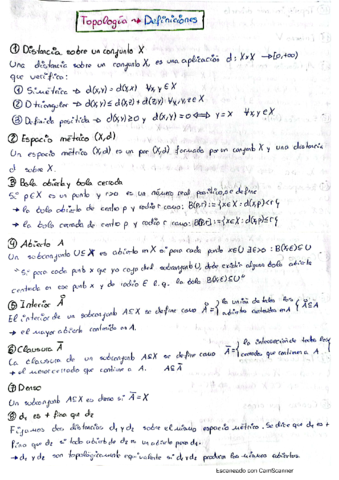 Topología → Definiciones
① Distancia sobre un conjunto X
Una distancia sobre un conjunto X, es una aplicación d: X×X → [0,+∞)
que verifica:
① Simétrica → d(x,y) = d(y,x) ∀x,y ∈ X
② D triangular → d(x,y) ≤ d(x,z) + d(z,y) ∀x,y,z ∈ X
③ Definida positiva → d(x,y) ≥ 0 y d(x,y) = 0 ⟺ y = x ∀x,y ∈ X
② Espacio métrico (X,d)
Un espacio métrico (X,d) es un par (X,d) formado por un conjunto X y una distancia
d sobre X.
③ Bola abierta y bola cerrada
Si p ∈ X es un punto y r>0 es un número real positivo, se define
→ la bola abierta de centro p y radio r como: B(p,r) := {x ∈ X : d(x,p) < r}
→ la bola cerrada de centro p y radio r como: B(p,r) := {x ∈ X : d(x,p) ≤ r}
④ Abierto A
Un subconjunto U ⊆ X es abierto en X si para cada punto x ∈ U ∃ε>0 : B(x,ε) ⊆ U
"Si para cada punto x que yo coja del subconjunto U, debe existir alguna bola abierta
centrada en ese punto x y de radio ε t. q. la bola B(x,ε) ⊆ U"
⑤ Interior Å
El interior de un subconjunto A ⊆ X se define como Å = { la unión de todos los abiertos contenidos en A } Å ⊆ A
→ el mayor abierto contenido en A.
⑥ Clausura A̅
La clausura de un subconjunto A ⊆ X se define como A̅ = { la intersección de todos los cerrados que contienen a A }
→ el menor cerrado que contiene a A. A ⊆ A̅
⑦ Denso
Un subconjunto A ⊆ X es denso si A̅ = X
⑧ d₁ es + fina que d₂
Fijamos dos distancias d₁ y d₂ sobre el mismo espacio métrico. Se dice que d₁ es +
fina que d₂ si todo abierto de d₂ es un abierto para d₁.
→ d₁ y d₂ son topológicamente equivalentes si d₁ y d₂ producen los mismos abiertos.
Escaneado con CamScanner